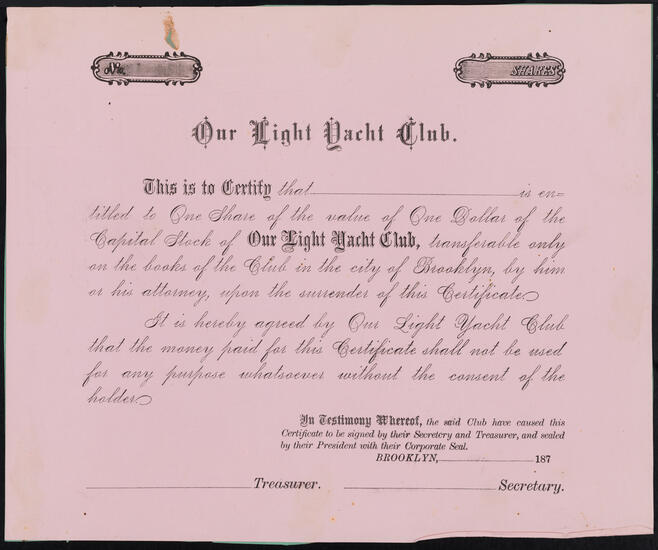 No.
SHARES
Our Light Yacht Club.
This is to Certify that is en=
titled to One Share of the value of One Dollar of the
Capital Stock of Our Light Yacht Club, transferable only
on the books of the Club in the city of Brooklyn, by him
or his attorney, upon the surrender of this Certificate.
It is hereby agreed by Our Light Yacht Club
that the money paid for this Certificate shall not be used
for any purpose whatsoever without the consent of the
holder.
In Testimony Whereof, the said Club have caused this
Certificate to be signed by their Secretory and Treasurer, and sealed
by their President with their Corporate Seal.
BROOKLYN, 187
Treasurer. Secretary.